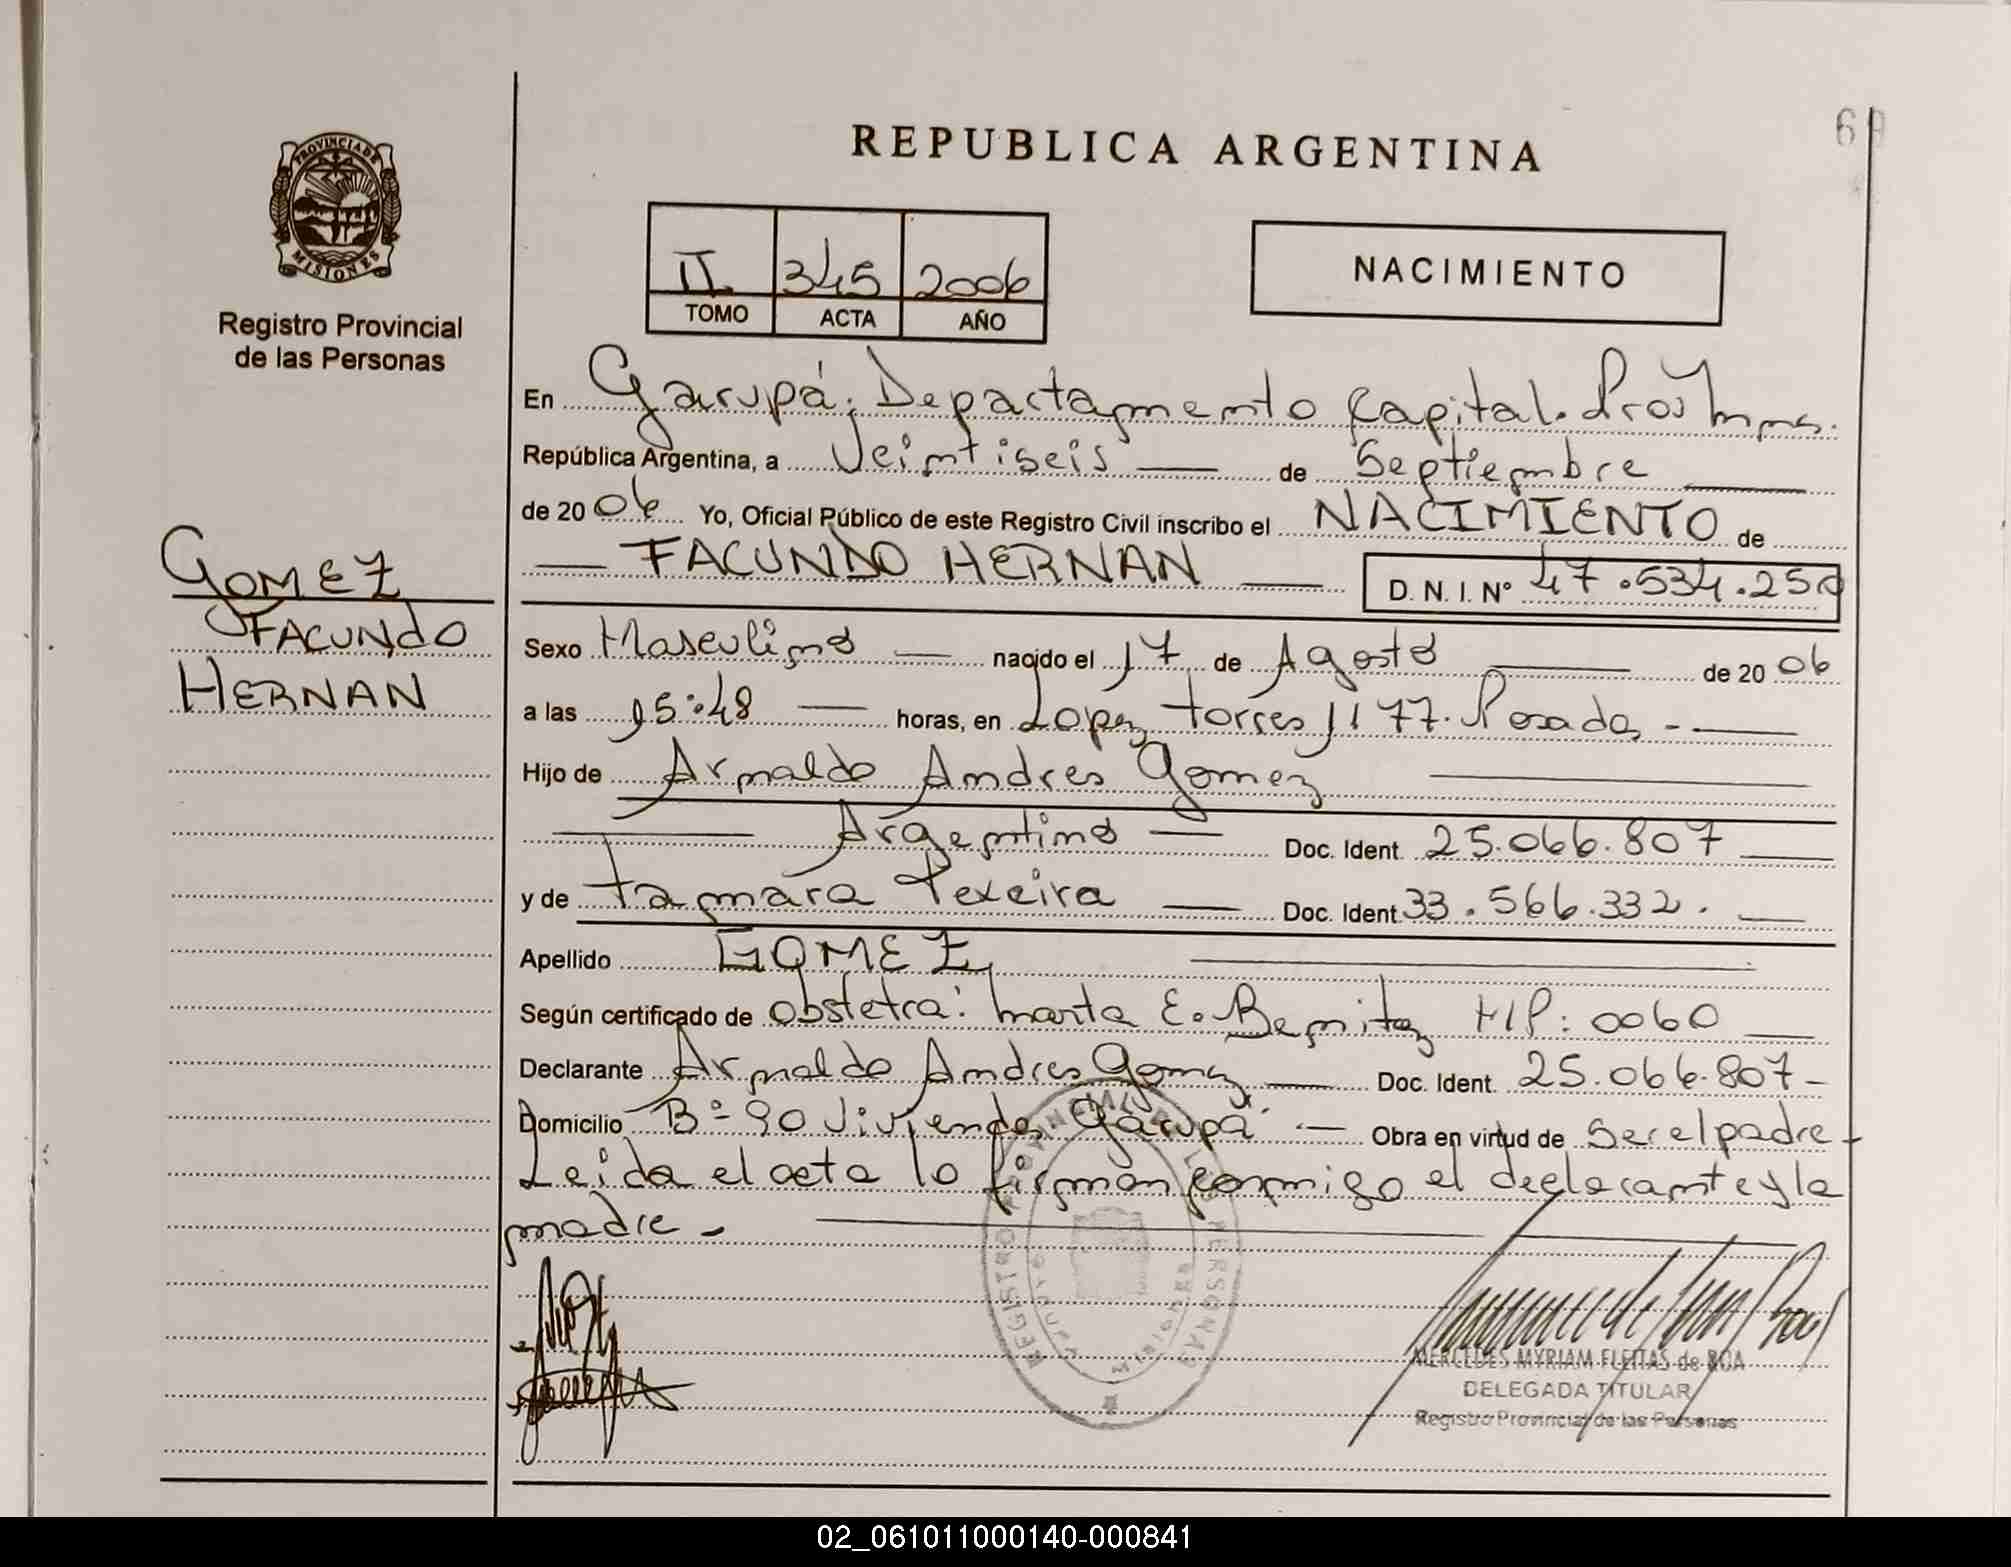 69
PROVINCIA DE
MISIONES
Registro Provincial
de las Personas
REPUBLICA ARGENTINA
II 345 2006
TOMO ACTA AÑO
NACIMIENTO
En Garupá, Departamento Capital. Prov Mnes.
República Argentina, a Veintiseis de Septiembre
de 2006 Yo, Oficial Público de este Registro Civil inscribo el NACIMIENTO de
FACUNDO HERNAN D. N. I. Nº 47.534.250
GOMEZ
FACUNDO
HERNAN
Sexo Masculino nacido el 17 de Agosto de 2006
a las 15:48 horas, en Lopez Torres 1177. Posadas -
Hijo de Arnaldo Andres Gomez
Argentino Doc. Ident. 25.066.807
y de Tamara Texeira Doc. Ident. 33.566.332.
Apellido GOMEZ
Según certificado de Obstetra: Marta E. Benitez MP: 0060
Declarante Arnaldo Andres Gomez Doc. Ident. 25.066.807-
Domicilio Bº 90 Viviendas Garupá Obra en virtud de ser el padre-
Leida el acta lo firman conmigo el declarante y la
madre -
REGISTRO PROVINCIAL DE LAS PERSONAS
GARUPA
MISIONES
MERCEDES MYRIAM FLEITAS de BOA
DELEGADA TITULAR
Registro Provincial de las Personas
02_061011000140-000841